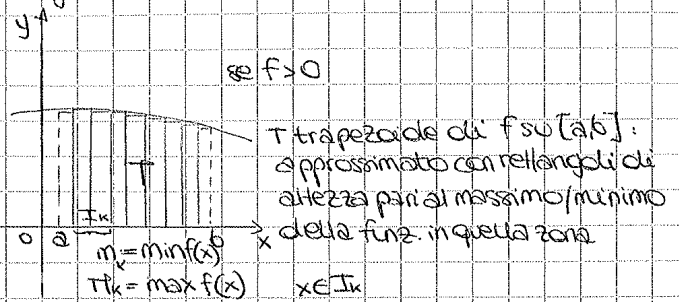 y
se f>0
T trapezoide di f su [a,b]:
approssimato con rettangoli di
altezza pari al massimo/minimo
della funz. in quella zona
T
Ik
0 a b x
mk = min f(x)
Mk = max f(x) x∈Ik